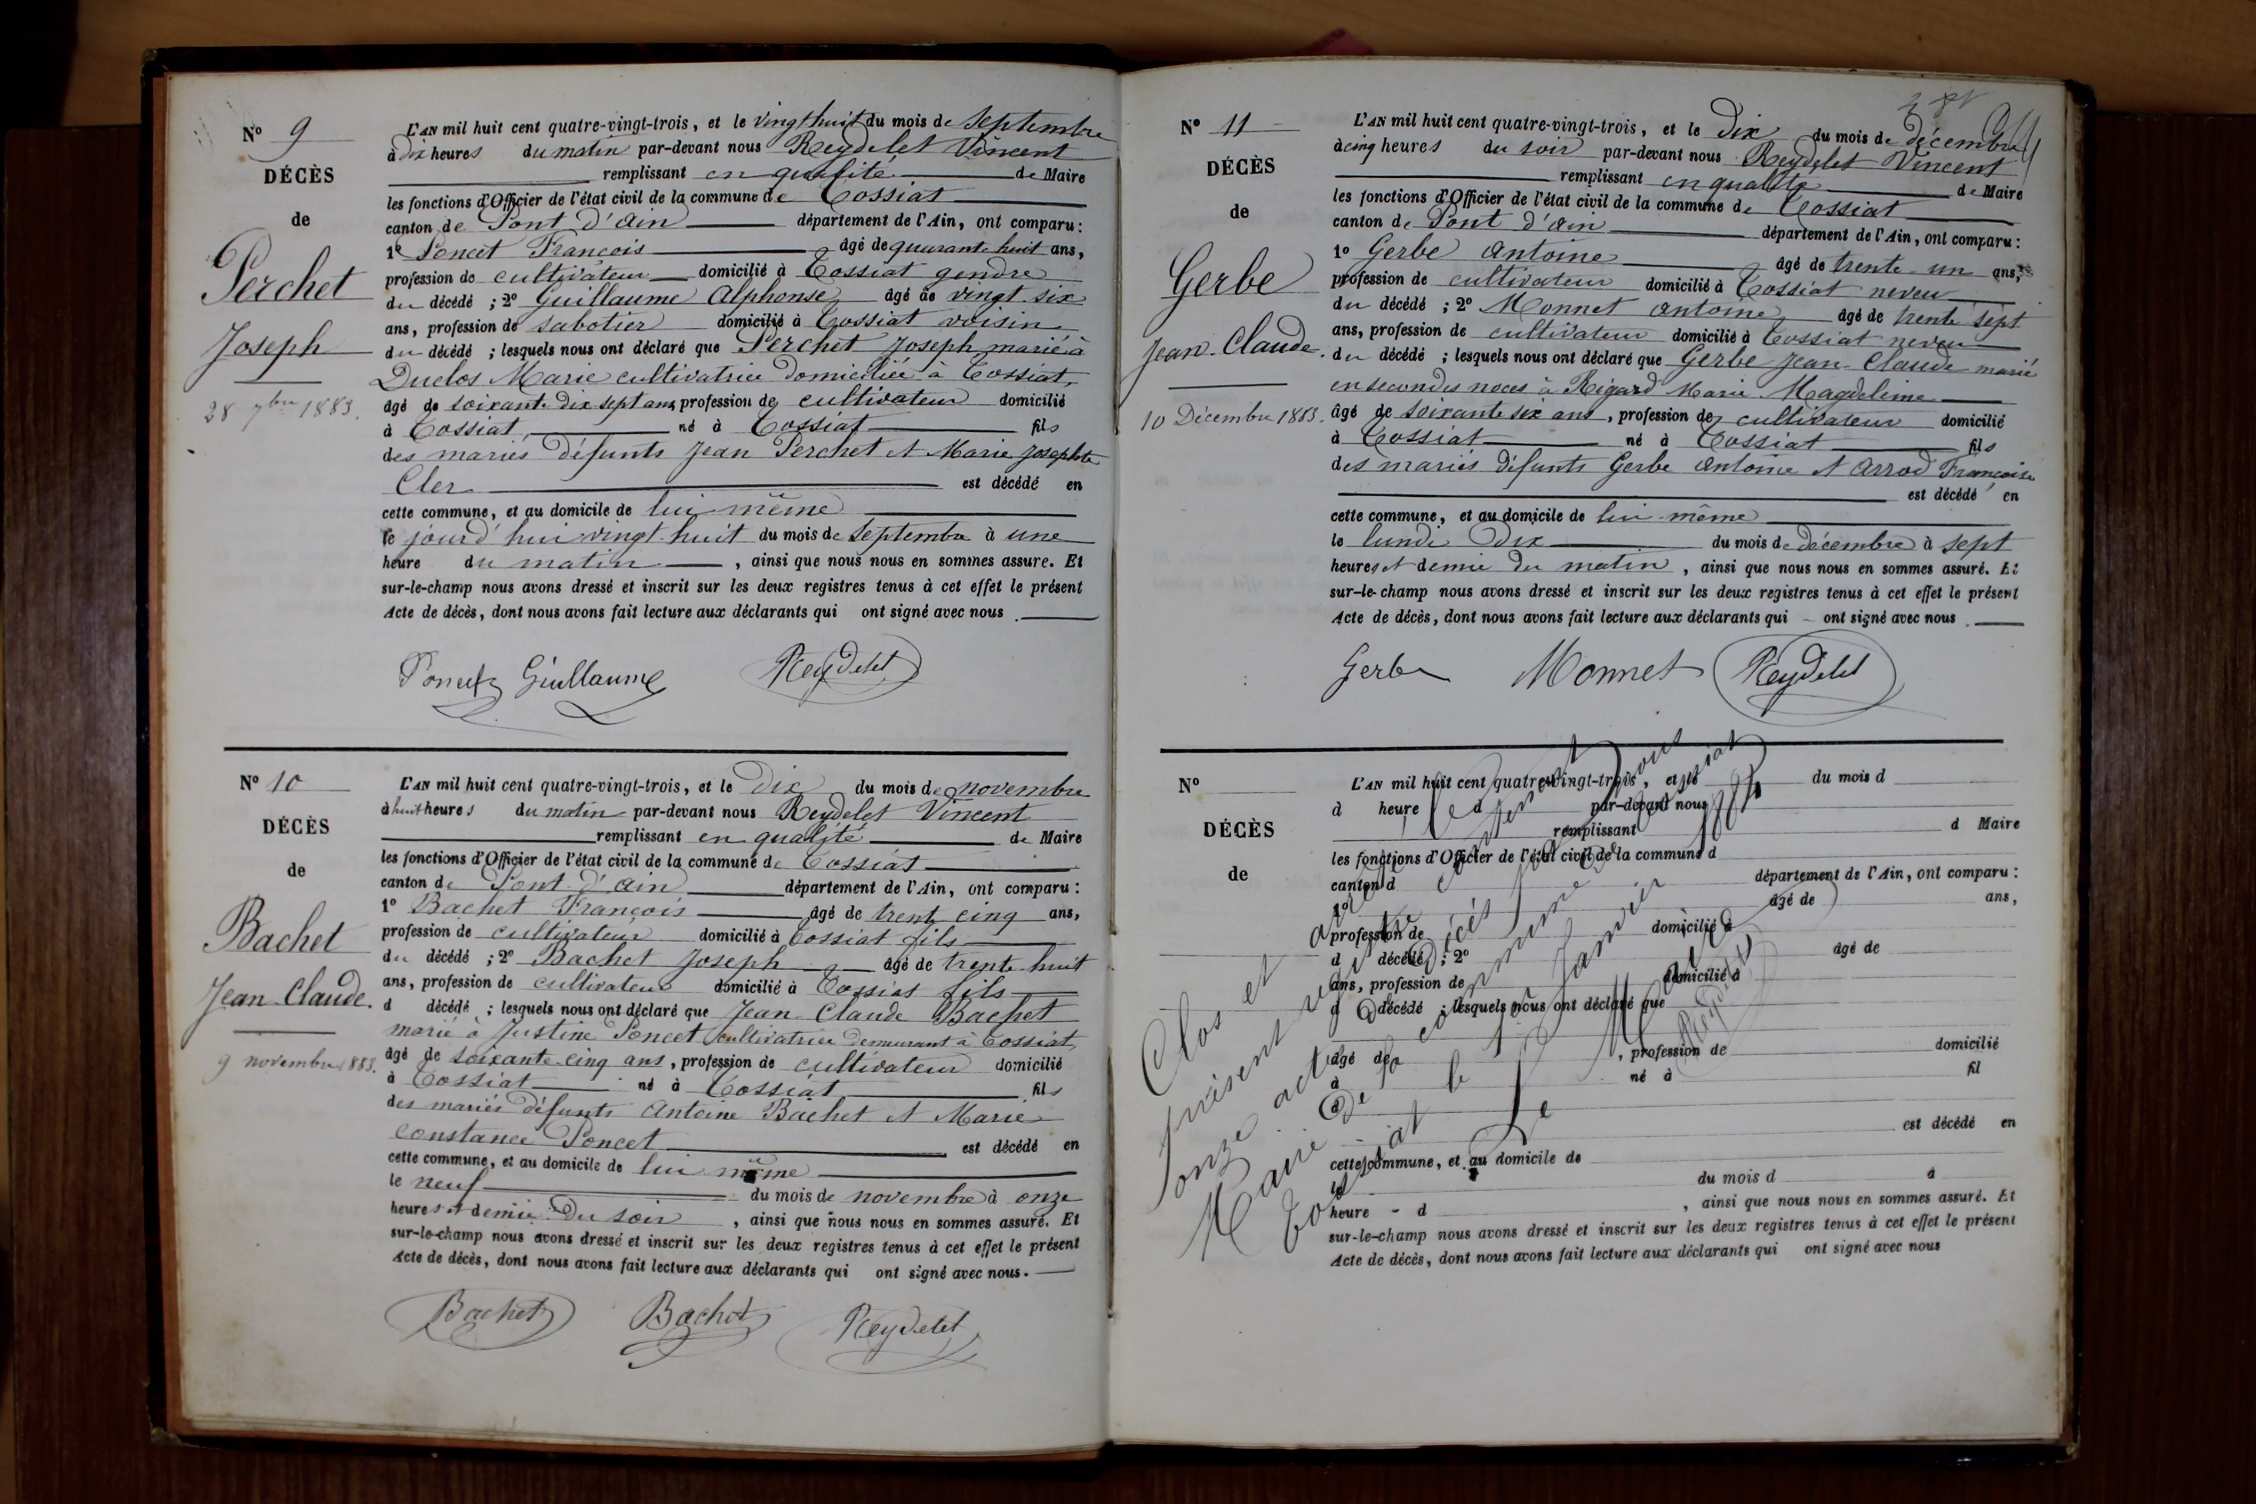 N° 9
DÉCÈS
de
Perchet
Joseph
28 7bre 1883.
L'AN mil huit cent quatre-vingt-trois, et le vingt huit du mois de septembre
à dix heures du matin par-devant nous Reydelet Vincent
remplissant en qualité de Maire
les fonctions d'Officier de l'état civil de la commune de Tossiat
canton de Pont d'ain département de l'Ain, ont comparu :
1° Poncet François âgé de quarante huit ans,
profession de cultivateur domicilié à Tossiat gendre
du décédé ; 2° Guillaume Alphonse âgé de vingt six
ans, profession de sabotier domicilié à Tossiat voisin
du décédé ; lesquels nous ont déclaré que Perchet Joseph marié à
Duclos Marie cultivatrice domiciliée à Tossiat,
âgé de soixante dix sept ans, profession de cultivateur domicilié
à Tossiat né à Tossiat fils
des mariés défunts Jean Perchet et Marie Josephte
Cler est décédé en
cette commune, et au domicile de lui même
le jourd'hui vingt huit du mois de septembre à une
heure du matin, ainsi que nous nous en sommes assuré. Et
sur-le-champ nous avons dressé et inscrit sur les deux registres tenus à cet effet le présent
Acte de décès, dont nous avons fait lecture aux déclarants qui ont signé avec nous.
Poncet Guillaume Reydelet
N° 10
DÉCÈS
de
Bachet
Jean Claude.
9 novembre 1883.
L'AN mil huit cent quatre-vingt-trois, et le dix du mois de novembre
à huit heures du matin par-devant nous Reydelet Vincent
remplissant en qualité de Maire
les fonctions d'Officier de l'état civil de la commune de Tossiat
canton de Pont d'ain département de l'Ain, ont comparu :
1° Bachet François âgé de trente cinq ans,
profession de cultivateur domicilié à Tossiat fils
du décédé ; 2° Bachet Joseph âgé de trente huit
ans, profession de cultivateur domicilié à Tossiat fils
d décédé ; lesquels nous ont déclaré que Jean Claude Bachet
marié à Justine Poncet cultivatrice demeurant à Tossiat,
âgé de soixante cinq ans, profession de cultivateur domicilié
à Tossiat né à Tossiat fils
des mariés défunts Antoine Bachet et Marie
constance Poncet est décédé en
cette commune, et au domicile de lui même
le neuf du mois de novembre à onze
heures et demie du soir, ainsi que nous nous en sommes assuré. Et
sur-le-champ nous avons dressé et inscrit sur les deux registres tenus à cet effet le présent
Acte de décès, dont nous avons fait lecture aux déclarants qui ont signé avec nous.
Bachet Bachet Reydelet
N° 11
DÉCÈS
de
Gerbe
Jean-Claude.
10 Décembre 1883.
L'AN mil huit cent quatre-vingt-trois, et le dix du mois de décembre
à cinq heures du soir par-devant nous Reydelet Vincent
remplissant en qualité de Maire
les fonctions d'Officier de l'état civil de la commune de Tossiat
canton de Pont d'ain département de l'Ain, ont comparu :
1° Gerbe Antoine âgé de trente un ans,
profession de cultivateur domicilié à Tossiat neveu
du décédé ; 2° Monnet Antoine âgé de trente sept
ans, profession de cultivateur domicilié à Tossiat neveu
du décédé ; lesquels nous ont déclaré que Gerbe Jean Claude marié
en secondes noces à Rigard Marie Magdeleine
âgé de soixante six ans, profession de cultivateur domicilié
à Tossiat né à Tossiat fils
des mariés défunts Gerbe Antoine et Arrod Françoise
est décédé en
cette commune, et au domicile de lui même
le lundi dix du mois de décembre à sept
heures et demie du matin, ainsi que nous nous en sommes assuré. Et
sur-le-champ nous avons dressé et inscrit sur les deux registres tenus à cet effet le présent
Acte de décès, dont nous avons fait lecture aux déclarants qui ont signé avec nous.
Gerbe Monnet Reydelet
N°
DÉCÈS
de
L'AN mil huit cent quatre-vingt-trois, et le du mois d
à heure d par-devant nous
remplissant d Maire
les fonctions d'Officier de l'état civil de la commune d
canton d département de l'Ain, ont comparu :
1° âgé de ans,
profession de domicilié à
d décédé ; 2° âgé de
ans, profession de domicilié à
d décédé ; lesquels nous ont déclaré que
âgé de , profession de domicilié
à né à fil
est décédé en
cette commune, et au domicile de
le du mois d à
heure d , ainsi que nous nous en sommes assuré. Et
sur-le-champ nous avons dressé et inscrit sur les deux registres tenus à cet effet le présent
Acte de décès, dont nous avons fait lecture aux déclarants qui ont signé avec nous
Clos et arrêté le
présent registre contenant
onze actes de décès par nous
Maire de la commune de Tossiat
Tossiat le 1er Janvier 1884
Le Maire
Reydelet